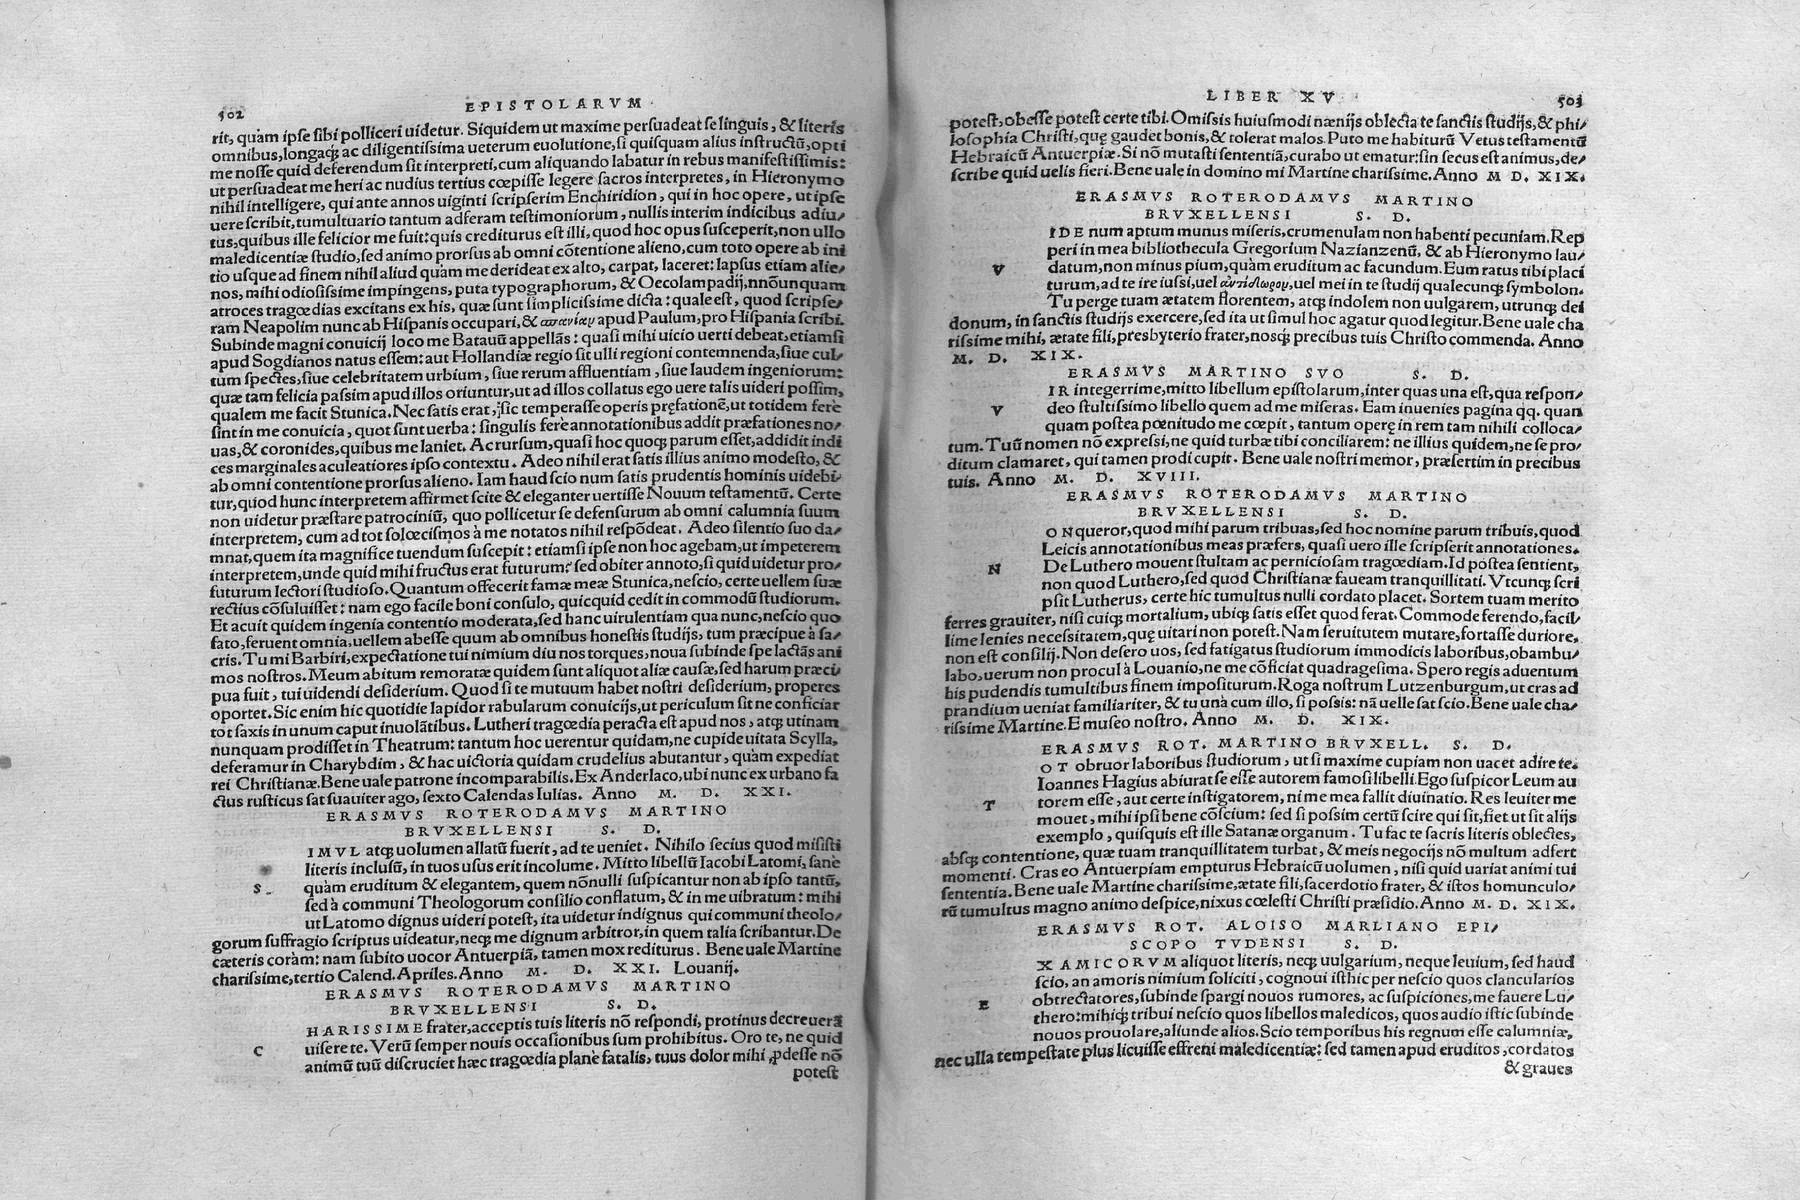 502
EPISTOLARVM
rit, quàm ipse sibi polliceri uidetur. Siquidem ut maxime persuadeat se linguis, & literis
omnibus, longaq́; ac diligentissima ueterum euolutione, si quisquam alius instructũ, opti
me nosse quid deferendum sit interpreti, cum aliquando labatur in rebus manifestissimis:
ut persuadeat me heri ac nudius tertius cœpisse legere sacros interpretes, in Hieronymo
nihil intelligere, qui ante annos uiginti scripserim Enchiridion, qui in hoc opere, ut ipse
uere scribit, tumultuario tantum adferam testimoniorum, nullis interim indicibus adiu/
tus, quibus ille felicior me fuit: quis crediturus est illi, quod hoc opus susceperit, non ullo
maledicentiæ studio, sed animo prorsus ab omni cõtentione alieno, cum toto opere ab ini
tio usque ad finem nihil aliud quàm me derideat ex alto, carpat, laceret: lapsus etiam alie/
nos, mihi odiosissime impingens, puta typographorum, & Oecolampadij, nnõunquam
atroces tragœdias excitans ex his, quæ sunt simplicissime dicta: quale est, quod scripse/
ram Neapolim nunc ab Hispanis occupari, & σπανίαν apud Paulum, pro Hispania scribi.
Subinde magni conuicij loco me Batauũ appellãs: quasi mihi uicio uerti debeat, etiamsi
apud Sogdianos natus essem: aut Hollandiæ regio sit ulli regioni contemnenda, siue cul/
tum spectes, siue celebritatem urbium, siue rerum affluentiam, siue laudem ingeniorum:
quæ tam felicia passim apud illos oriuntur, ut ad illos collatus ego uere talis uideri possim,
qualem me facit Stunica. Nec satis erat, sic temperasse operis pręfationẽ, ut totidem ferè
sint in me conuicia, quot sunt uerba: singulis ferè annotationibus addit præfationes no/
uas, & coronides, quibus me laniet. Ac rursum, quasi hoc quoq; parum esset, addidit indi
ces marginales aculeatiores ipso contextu. Adeo nihil erat satis illius animo modesto, &
ab omni contentione prorsus alieno. Iam haud scio num satis prudentis hominis uidebi/
tur, quod hunc interpretem affirmet scite & eleganter uertisse Nouum testamentũ. Certe
non uidetur præstare patrociniũ, quo pollicetur se defensurum ab omni calumnia suum
interpretem, cum ad tot solœcismos à me notatos nihil respõdeat. Adeo silentio suo da/
mnat, quem ita magnifice tuendum suscepit: etiamsi ipse non hoc agebam, ut impeterem
interpretem, unde quid mihi fructus erat futurum: sed obiter annoto, si quid uidetur pro/
futurum lectori studioso. Quantum offecerit famæ meæ Stunica, nescio, certe uellem suæ
rectius cõsuluisset: nam ego facile boni consulo, quicquid cedit in commodũ studiorum.
Et acuit quidem ingenia contentio moderata, sed hanc uirulentiam qua nunc, nescio quo
fato, feruent omnia, uellem abesse quum ab omnibus honestis studijs, tum præcipue à sa/
cris. Tu mi Barbiri, expectatione tui nimium diu nos torques, noua subinde spe lactãs ani
mos nostros. Meum abitum remoratæ quidem sunt aliquot aliæ causæ, sed harum præci/
pua fuit, tui uidendi desiderium. Quod si te mutuum habet nostri desiderium, properes
oportet. Sic enim hic quotidie lapidor rabularum conuicijs, ut periculum sit ne conficiar
tot saxis in unum caput inuolãtibus. Lutheri tragœdia peracta est apud nos, atq; utinam
nunquam prodisset in Theatrum: tantum hoc uerentur quidam, ne cupide uitata Scylla,
deferamur in Charybdim, & hac uictoria quidam crudelius abutantur, quàm expediat
rei Christianæ. Bene uale patrone incomparabilis. Ex Anderlaco, ubi nunc ex urbano fa
ctus rusticus sat suauiter ago, sexto Calendas Iulias. Anno M. D. XXI.
ERASMVS ROTERODAMVS MARTINO
BRVXELLENSI S. D.
SIMVL atq; uolumen allatũ fuerit, ad te ueniet. Nihilo secius quod misisti
literis inclusũ, in tuos usus erit incolume. Mitto libellũ Iacobi Latomi, sanè
quàm eruditum & elegantem, quem nõnulli suspicantur non ab ipso tantũ,
sed à communi Theologorum consilio conflatum, & in me uibratum: mihi
ut Latomo dignus uideri potest, ita uidetur indignus qui communi theolo/
gorum suffragio scriptus uideatur, neq; me dignum arbitror, in quem talia scribantur. De
cæteris coràm: nam subito uocor Antuerpiã, tamen mox rediturus. Bene uale Martine
charissime, tertio Calend. Apriles. Anno M. D. XXI. Louanij.
ERASMVS ROTERODAMVS MARTINO
BRVXELLENSI S. D.
CHARISSIME frater, acceptis tuis literis nõ respondi, protinus decreuerã
uisere te. Verũ semper nouis occasionibus sum prohibitus. Oro te, ne quid
animũ tuũ discruciet hæc tragœdia planè fatalis, tuus dolor mihi ꝓdesse nõ
potest
LIBER XV
503
potest, obesse potest certe tibi. Omissis huiusmodi nænijs oblecta te sanctis studijs, & phi/
losophia Christi, quę gaudet bonis, & tolerat malos. Puto me habiturũ Vetus testamentũ
Hebraicũ Antuerpiæ. Si nõ mutasti sententiã, curabo ut ematur: sin secus est animus, de/
scribe quid uelis fieri. Bene uale in domino mi Martine charissime. Anno M D. XIX.
ERASMVS ROTERODAMVS MARTINO
BRVXELLENSI S. D.
VIDE num aptum munus miseris, crumenulam non habenti pecuniam. Rep
peri in mea bibliothecula Gregorium Nazianzenũ, & ab Hieronymo lau/
datum, non minus pium, quàm eruditum ac facundum. Eum ratus tibi placi
turum, ad te ire iussi, uel ἀντίδωρον, uel mei in te studij qualecunq; symbolon.
Tu perge tuam ætatem florentem, atq; indolem non uulgarem, utrunq; dei
donum, in sanctis studijs exercere, sed ita ut simul hoc agatur quod legitur. Bene uale cha
rissime mihi, ætate fili, presbyterio frater, nosq; precibus tuis Christo commenda. Anno
M. D. XIX.
ERASMVS MARTINO SVO S. D.
VIR integerrime, mitto libellum epistolarum, inter quas una est, qua respon/
deo stultissimo libello quem ad me miseras. Eam inuenies pagina qq. quan
quam postea pœnitudo me cœpit, tantum operę in rem tam nihili colloca/
tum. Tuũ nomen nõ expressi, ne quid turbæ tibi conciliarem: ne illius quidem, ne se pro/
ditum clamaret, qui tamen prodi cupit. Bene uale nostri memor, præsertim in precibus
tuis. Anno M. D. XVIII.
ERASMVS ROTERODAMVS MARTINO
BRVXELLENSI S. D.
NON queror, quod mihi parum tribuas, sed hoc nomine parum tribuis, quod
Leicis annotationibus meas præfers, quasi uero ille scripserit annotationes.
De Luthero mouent stultam ac perniciosam tragœdiam. Id postea sentient,
non quod Luthero, sed quod Christianæ faueam tranquillitati. Vtcunq; scri
psit Lutherus, certe hic tumultus nulli cordato placet. Sortem tuam merito
ferres grauiter, nisi cuiq; mortalium, ubiq; satis esset quod ferat. Commode ferendo, facil/
lime lenies necessitatem, quę uitari non potest. Nam seruitutem mutare, fortasse duriore,
non est consilij. Non desero uos, sed fatigatus studiorum immodicis laboribus, obambu/
labo, uerum non procul à Louanio, ne me cõficiat quadragesima. Spero regis aduentum
his pudendis tumultibus finem impositurum. Roga nostrum Lutzenburgum, ut cras ad
prandium ueniat familiariter, & tu unà cum illo, si possis: nã uelle sat scio. Bene uale cha/
rissime Martine. E museo nostro. Anno M. D. XIX.
ERASMVS ROT. MARTINO BRVXELL. S. D.
TOT obruor laboribus studiorum, ut si maxime cupiam non uacet adire te.
Ioannes Hagius abiurat se esse autorem famosi libelli. Ego suspicor Leum au
torem esse, aut certe instigatorem, ni me mea fallit diuinatio. Res leuiter me
mouet, mihi ipsi bene cõscium: sed si possim certũ scire qui sit, fiet ut sit alijs
exemplo, quisquis est ille Satanæ organum. Tu fac te sacris literis oblectes,
absq; contentione, quæ tuam tranquillitatem turbat, & meis negocijs nõ multum adfert
momenti. Cras eo Antuerpiam empturus Hebraicũ uolumen, nisi quid uariat animi tui
sententia. Bene uale Martine charissime, ætate fili, sacerdotio frater, & istos homunculo/
rũ tumultus magno animo despice, nixus cœlesti Christi præsidio. Anno M. D. XIX.
ERASMVS ROT. ALOISO MARLIANO EPI/
SCOPO TVDENSI S. D.
EX AMICORVM aliquot literis, neq; uulgarium, neque leuium, sed haud
scio, an amoris nimium soliciti, cognoui isthic per nescio quos clancularios
obtrectatores, subinde spargi nouos rumores, ac suspiciones, me fauere Lu/
thero: mihiq; tribui nescio quos libellos maledicos, quos audio istic subinde
nouos prouolare, aliunde alios. Scio temporibus his regnum esse calumniæ,
nec ulla tempestate plus licuisse effreni maledicentiæ: sed tamen apud eruditos, cordatos
& graues